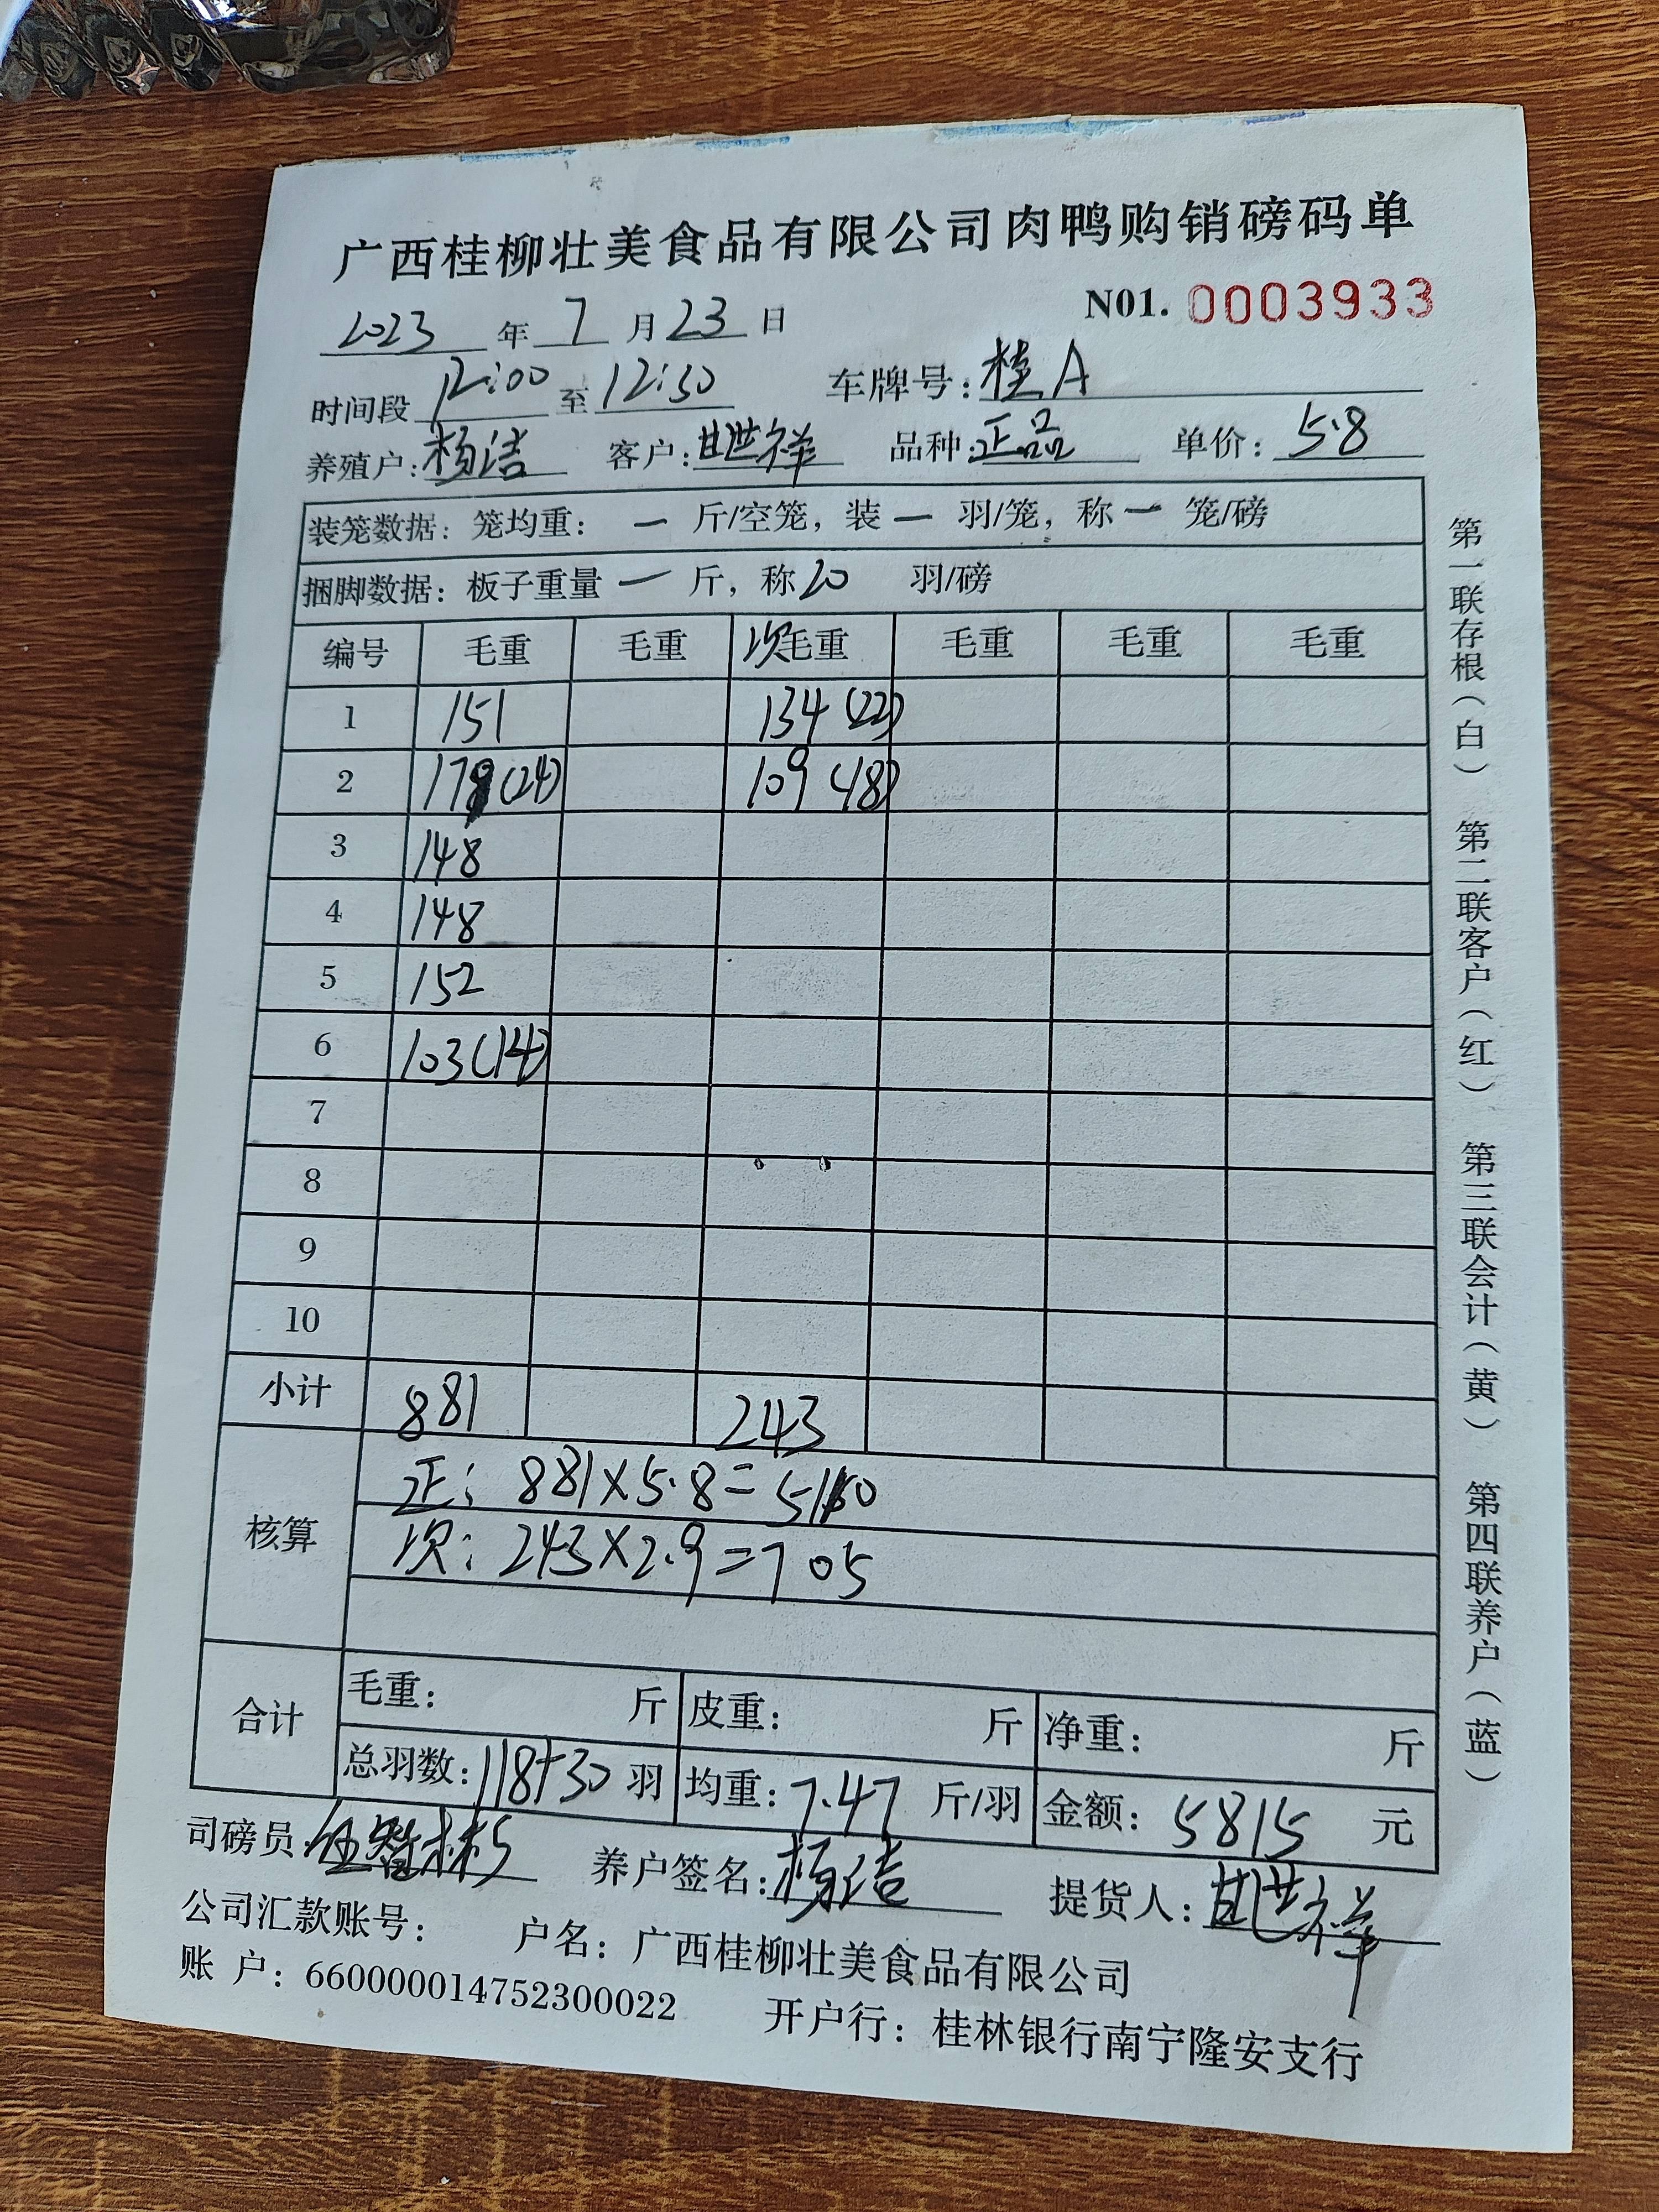 广西桂柳壮美食品有限公司肉鸭购销磅码单
N01. 0003933
2023 年 7 月 23 日
时间段 12:00 至 12:30 车牌号: 桂A
养殖户: 杨洁 客户: 甘世祥 品种: 正品 单价: 5.8
装笼数据: 笼均重: 一 斤/空笼, 装 一 羽/笼, 称 一 笼/磅
捆脚数据: 板子重量 一 斤, 称 20 羽/磅
编号 毛重 毛重 次毛重 毛重 毛重 毛重
1 151 134 (22)
2 179 (24) 109 (18)
3 148
4 148
5 152
6 103 (14)
7
8
9
10
小计 881 243
核算
正: 881×5.8=5110
次: 243×2.9=705
合计
毛重: 斤 皮重: 斤 净重: 斤
总羽数: 118+30 羽 均重: 7.47 斤/羽 金额: 5815 元
司磅员: 养户签名: 杨洁 提货人: 甘世祥
公司汇款账号: 户名: 广西桂柳壮美食品有限公司
账 户: 660000014752300022 开户行: 桂林银行南宁隆安支行
第一联存根(白) 第二联客户(红) 第三联会计(黄) 第四联养户(蓝)